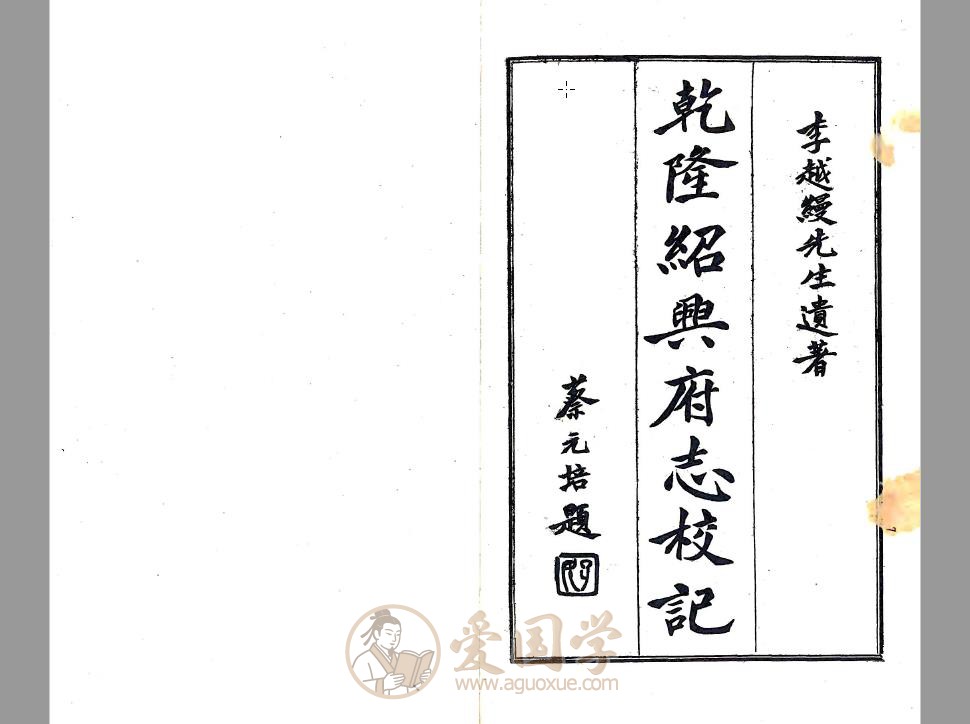 李越縵先生遺著
乾隆紹興府志校記
蔡元培題
爱国学
www.aguoxue.com